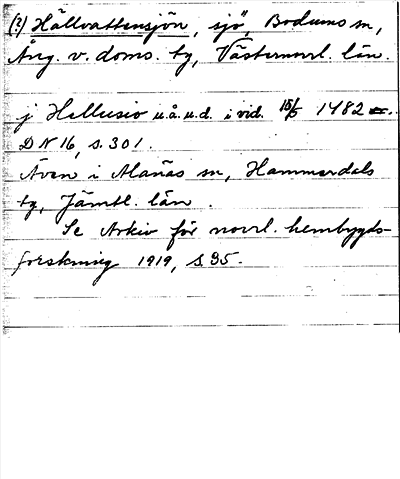 (?) Hällvattensjön, sjö, Bodums sn,
Ång. v. doms. tg, Västernorrl. län.
j Hellusio u.å.u.d. i vid. 15/5 1482
DN 16, s. 301.
Även i Alanäs sn, Hammerdals
tg, Jämtl. län.
Se Arkiv för norrl. hembygds-
forskning 1919, s. 95.